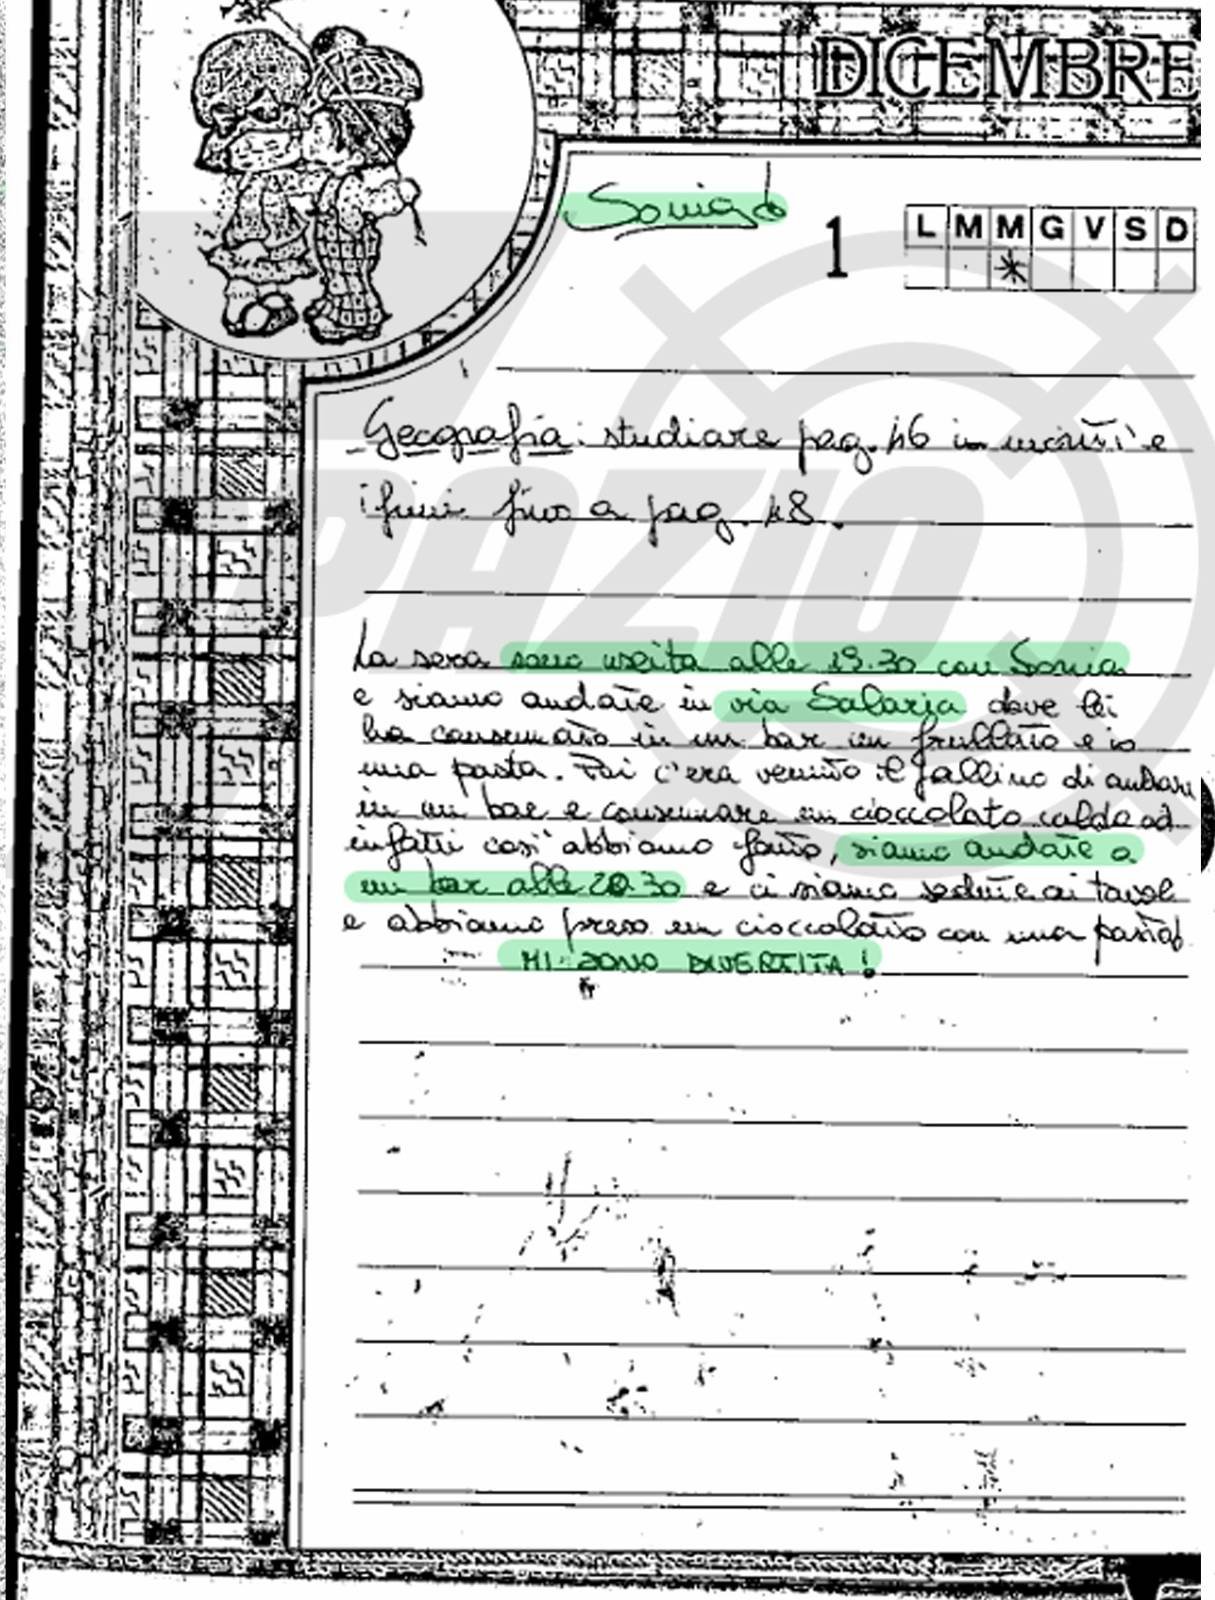 DICEMBRE
Sonia
1
L M M G V S D
Geografia: studiare pag. 46 in e
fino a pag. 48.
La sera sono uscita alle 19.30 con Sonia
e siamo andate in via Salaria dove lei
ha consumato in un bar un frullato e io
una pasta. Poi c'era venuto il di andare
in un bar e consumare un cioccolato caldo ed
infatti così abbiamo fatto, siamo andate a
un bar alle 20.30 e ci siamo sedute ai tavol
e abbiamo preso un cioccolato con una pasta
MI SONO DIVERTITA!
SPAZIO